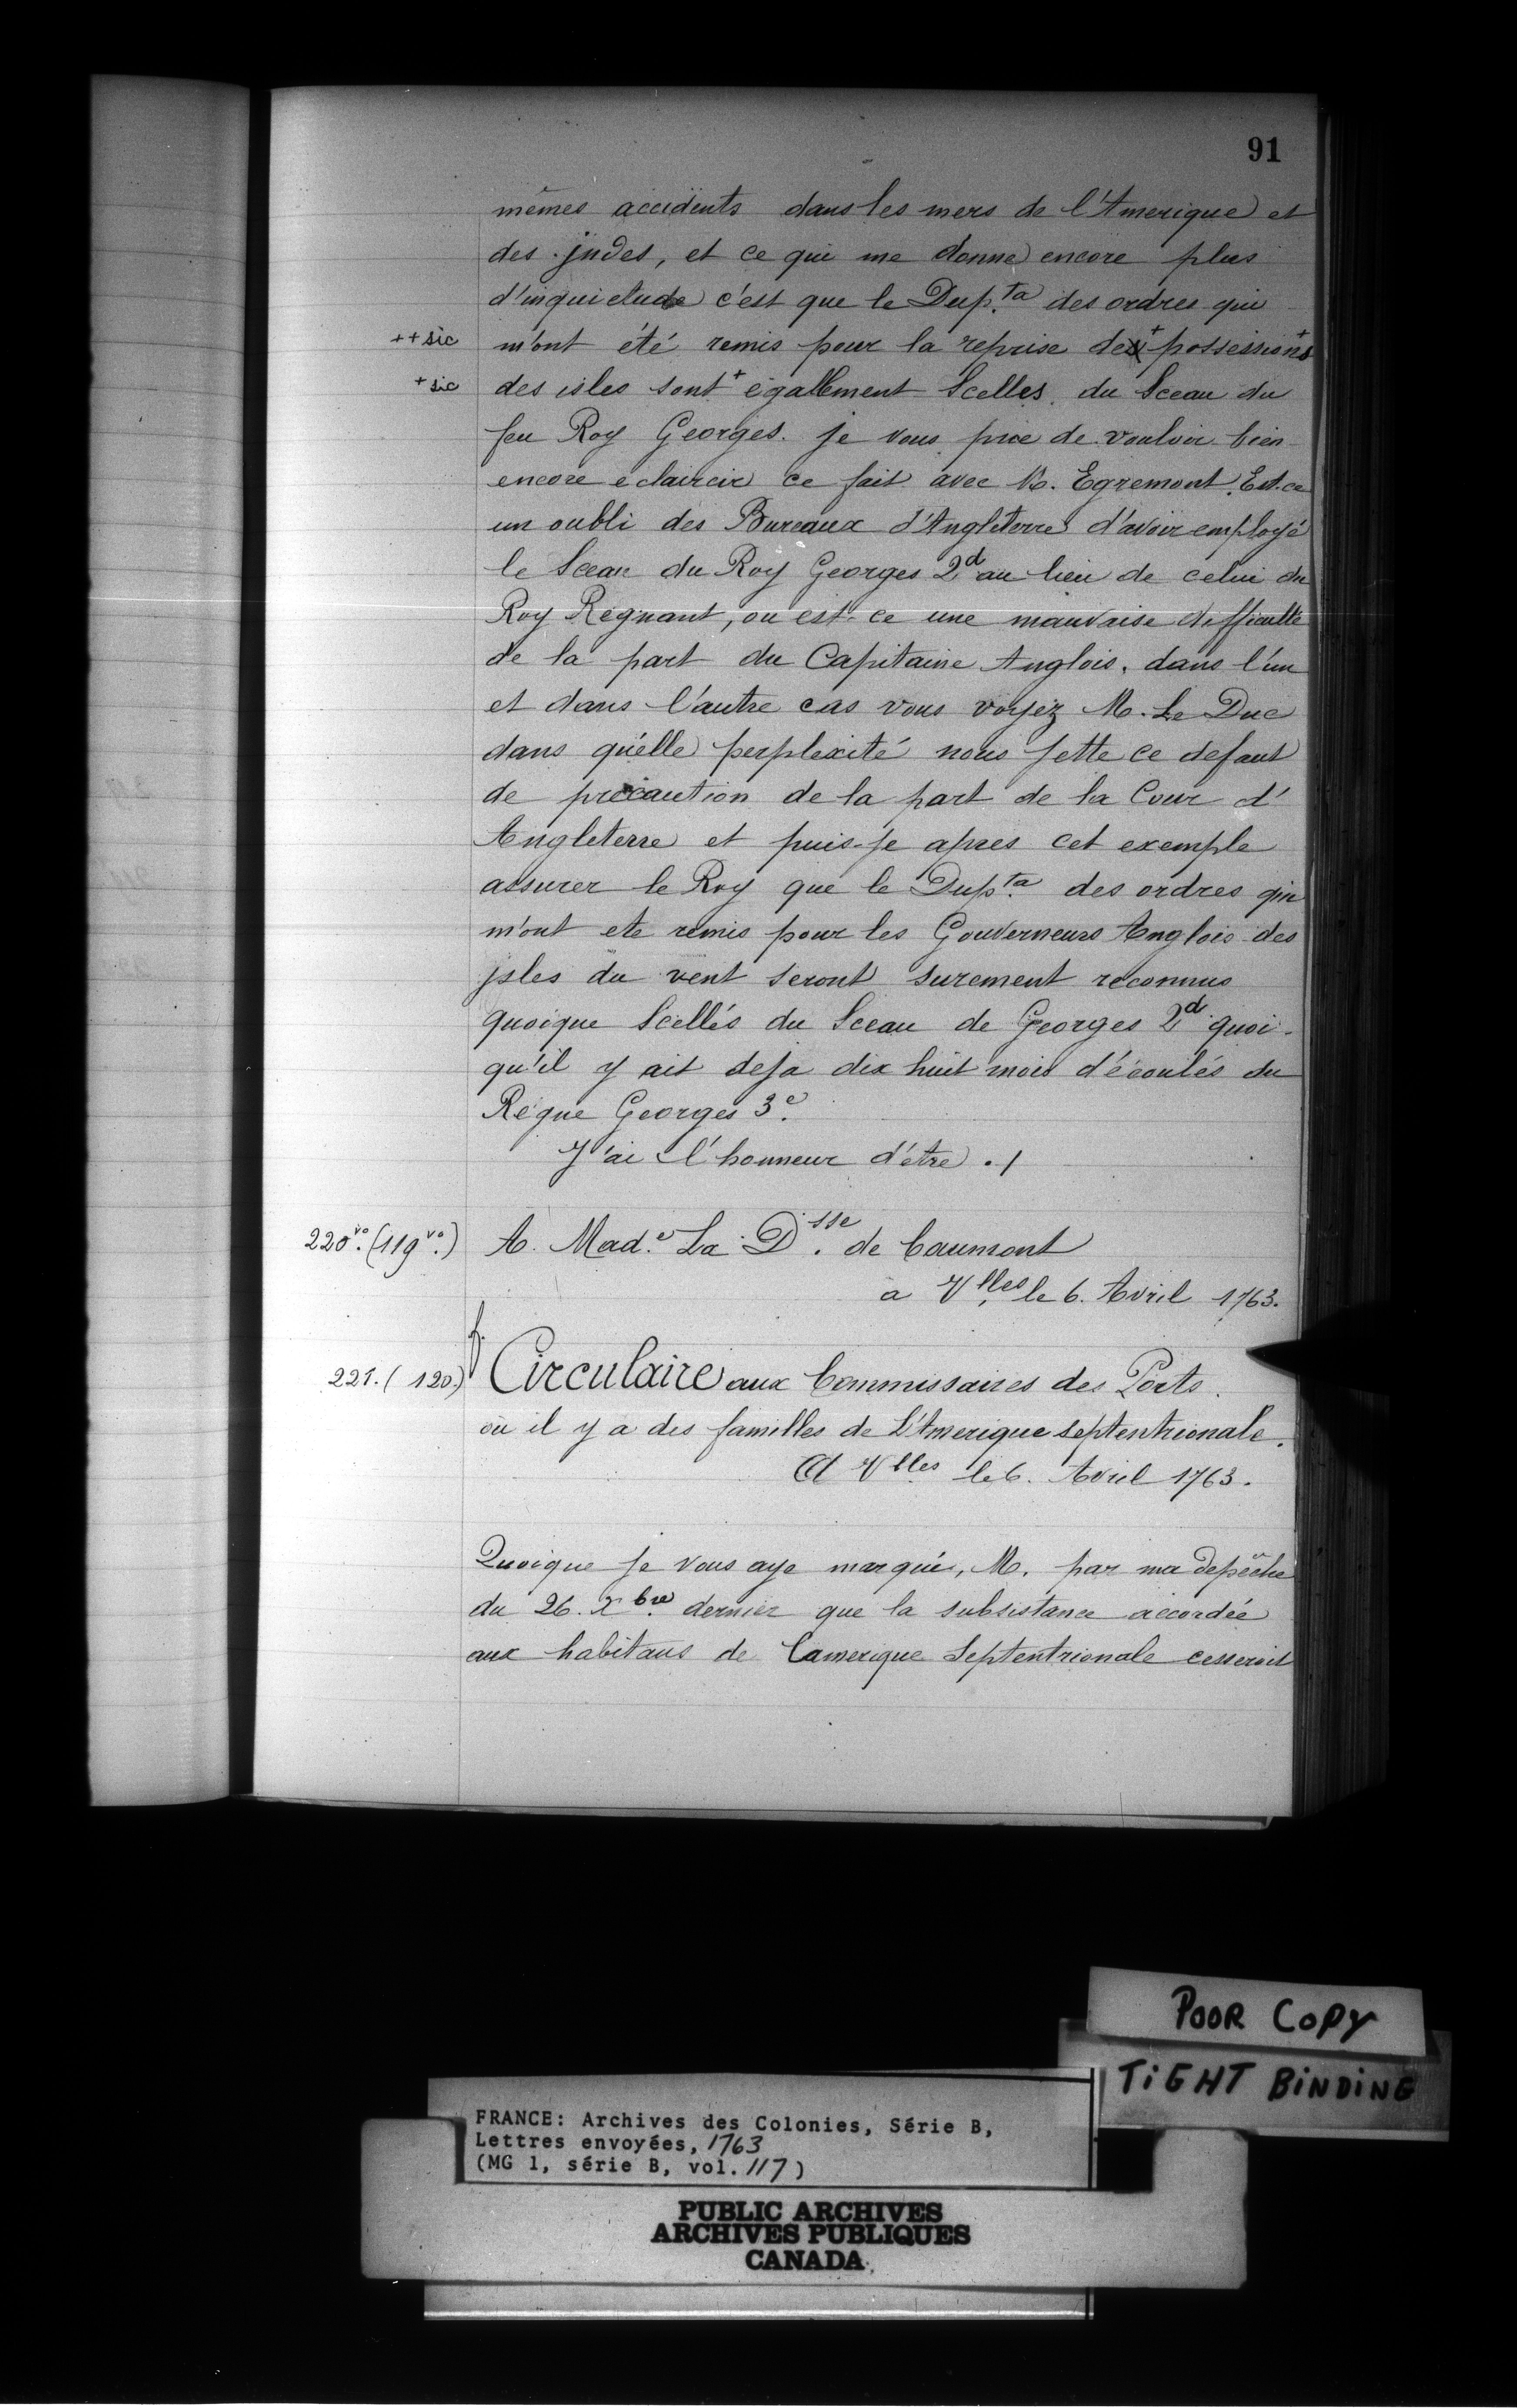 91
mêmes accidents dans les mers de l'Amerique et
des jndes, et ce qui me donne encore plus
d'inquietude c'est que le Dup.ta des ordres qui
++ sic m'ont été remis pour la reprise des+ possessions+
+ sic des isles sont+ égallement Scelles du Sceau du
feu Roy Georges. je vous prie de vouloir bien
encore eclaircir ce fait avec M. Egremont. Est.ce
un oubli des Bureaux d'Angleterre d'avoir employé
le Sceau du Roy Georges 2d au lieu de celui du
Roy Régnant, ou est-ce une mauvaise difficulté
de la part du Capitaine Anglois. dans l'un
et dans l'autre cas vous voyez M. Le Duc
dans qu'elle perplexité nous jette ce defaut
de précaution de la part de la Cour d'
Angleterre et puis-je apres cet exemple
assurer le Roy que le Dup.ta des ordres qui
m'ont ete remis pour les Gouverneurs Anglois des
jsles du vent seront surement reconnus
quoique Scellés du Sceau de Georges 2d quoi-
qu'il y ait deja dix huit mois d'écoulés du
Régne Georges 3e.
J'ai l'honneur d'être ./
220vo. (119vo.) A. Mad.e La D.sse de Caumont
a Vlles le 6. Avril 1763.
f.
221. (120.) Circulaire aux Commissaires des Ports
où il y a des familles de L'Amerique septentrionale.
A Vlles le 6. Avril 1763.
Quoique je vous aye marqué, M. par ma depêche
du 26. Xbre dernier que la subsistance accordée
aux habitans de Lamerique Septentrionale cesseroit
POOR COPY
TIGHT BINDING
FRANCE: Archives des Colonies, Série B,
Lettres envoyées, 1763
(MG 1, série B, vol. 117)
PUBLIC ARCHIVES
ARCHIVES PUBLIQUES
CANADA